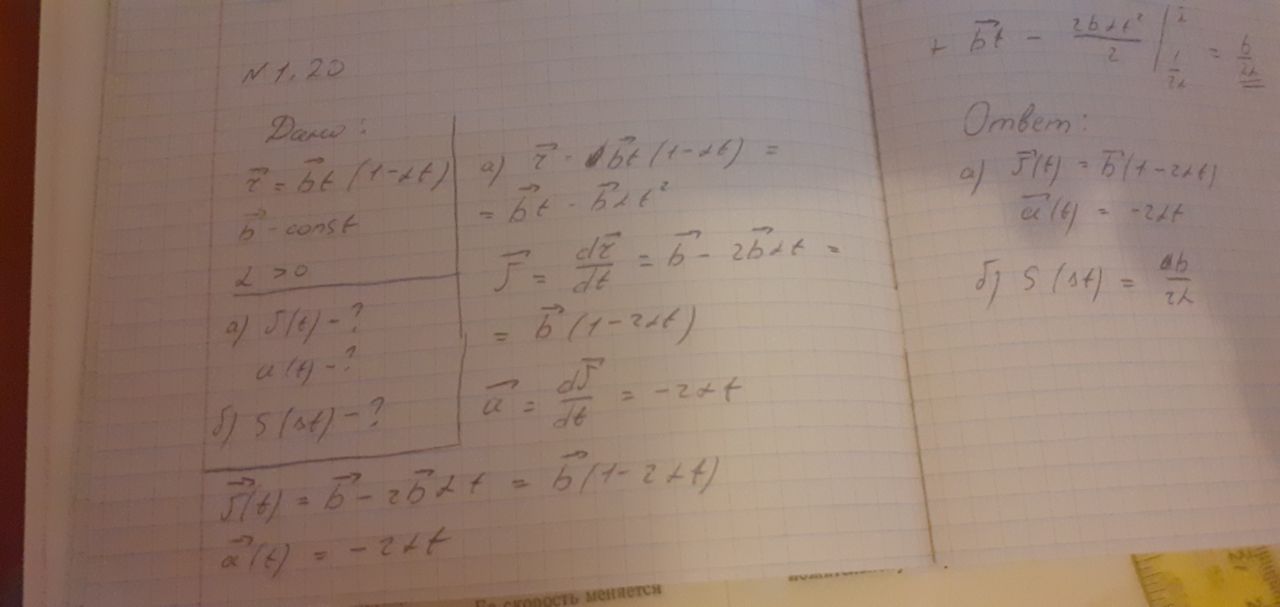 N 1.20
Дано:
r⃗ = b⃗t (1-αt)
b⃗ - const
α > 0
а) υ(t) - ?
a(t) - ?
б) S (Δt) - ?
а) r⃗ = b⃗t (1-αt) =
= b⃗t - b⃗αt²
υ⃗ = dr⃗/dt = b⃗ - 2b⃗αt =
= b⃗ (1-2αt)
a⃗ = dυ⃗/dt = -2αt
υ⃗(t) = b⃗ - 2b⃗αt = b⃗(1-2αt)
a⃗(t) = -2αt
+ b⃗t - 2bαt²/2 | = b/2α
Ответ:
а) υ⃗(t) = b⃗(1-2αt)
a⃗(t) = -2αt
б) S (Δt) = b/2α
скорость меняется